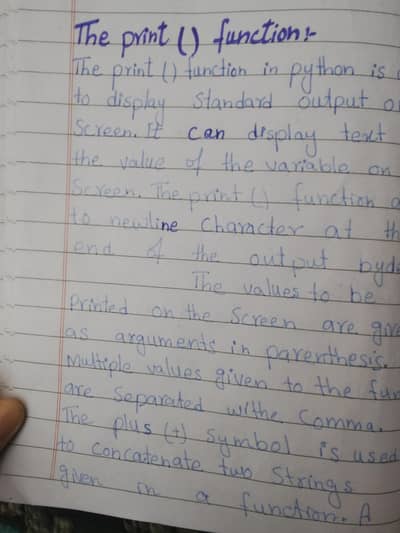 The print () function:-
The print () function in python is
to display Standard output
Screen. It can display text
the value of the variable on
Screen. The print () function
to newline Character at th
end of the output byde
The values to be
Printed on the Screen are give
as arguments in parenthesis.
Multiple values given to the fun
are Separated withe Comma.
The plus (+) Symbol is used
to Concatenate two Strings
given in a function. A